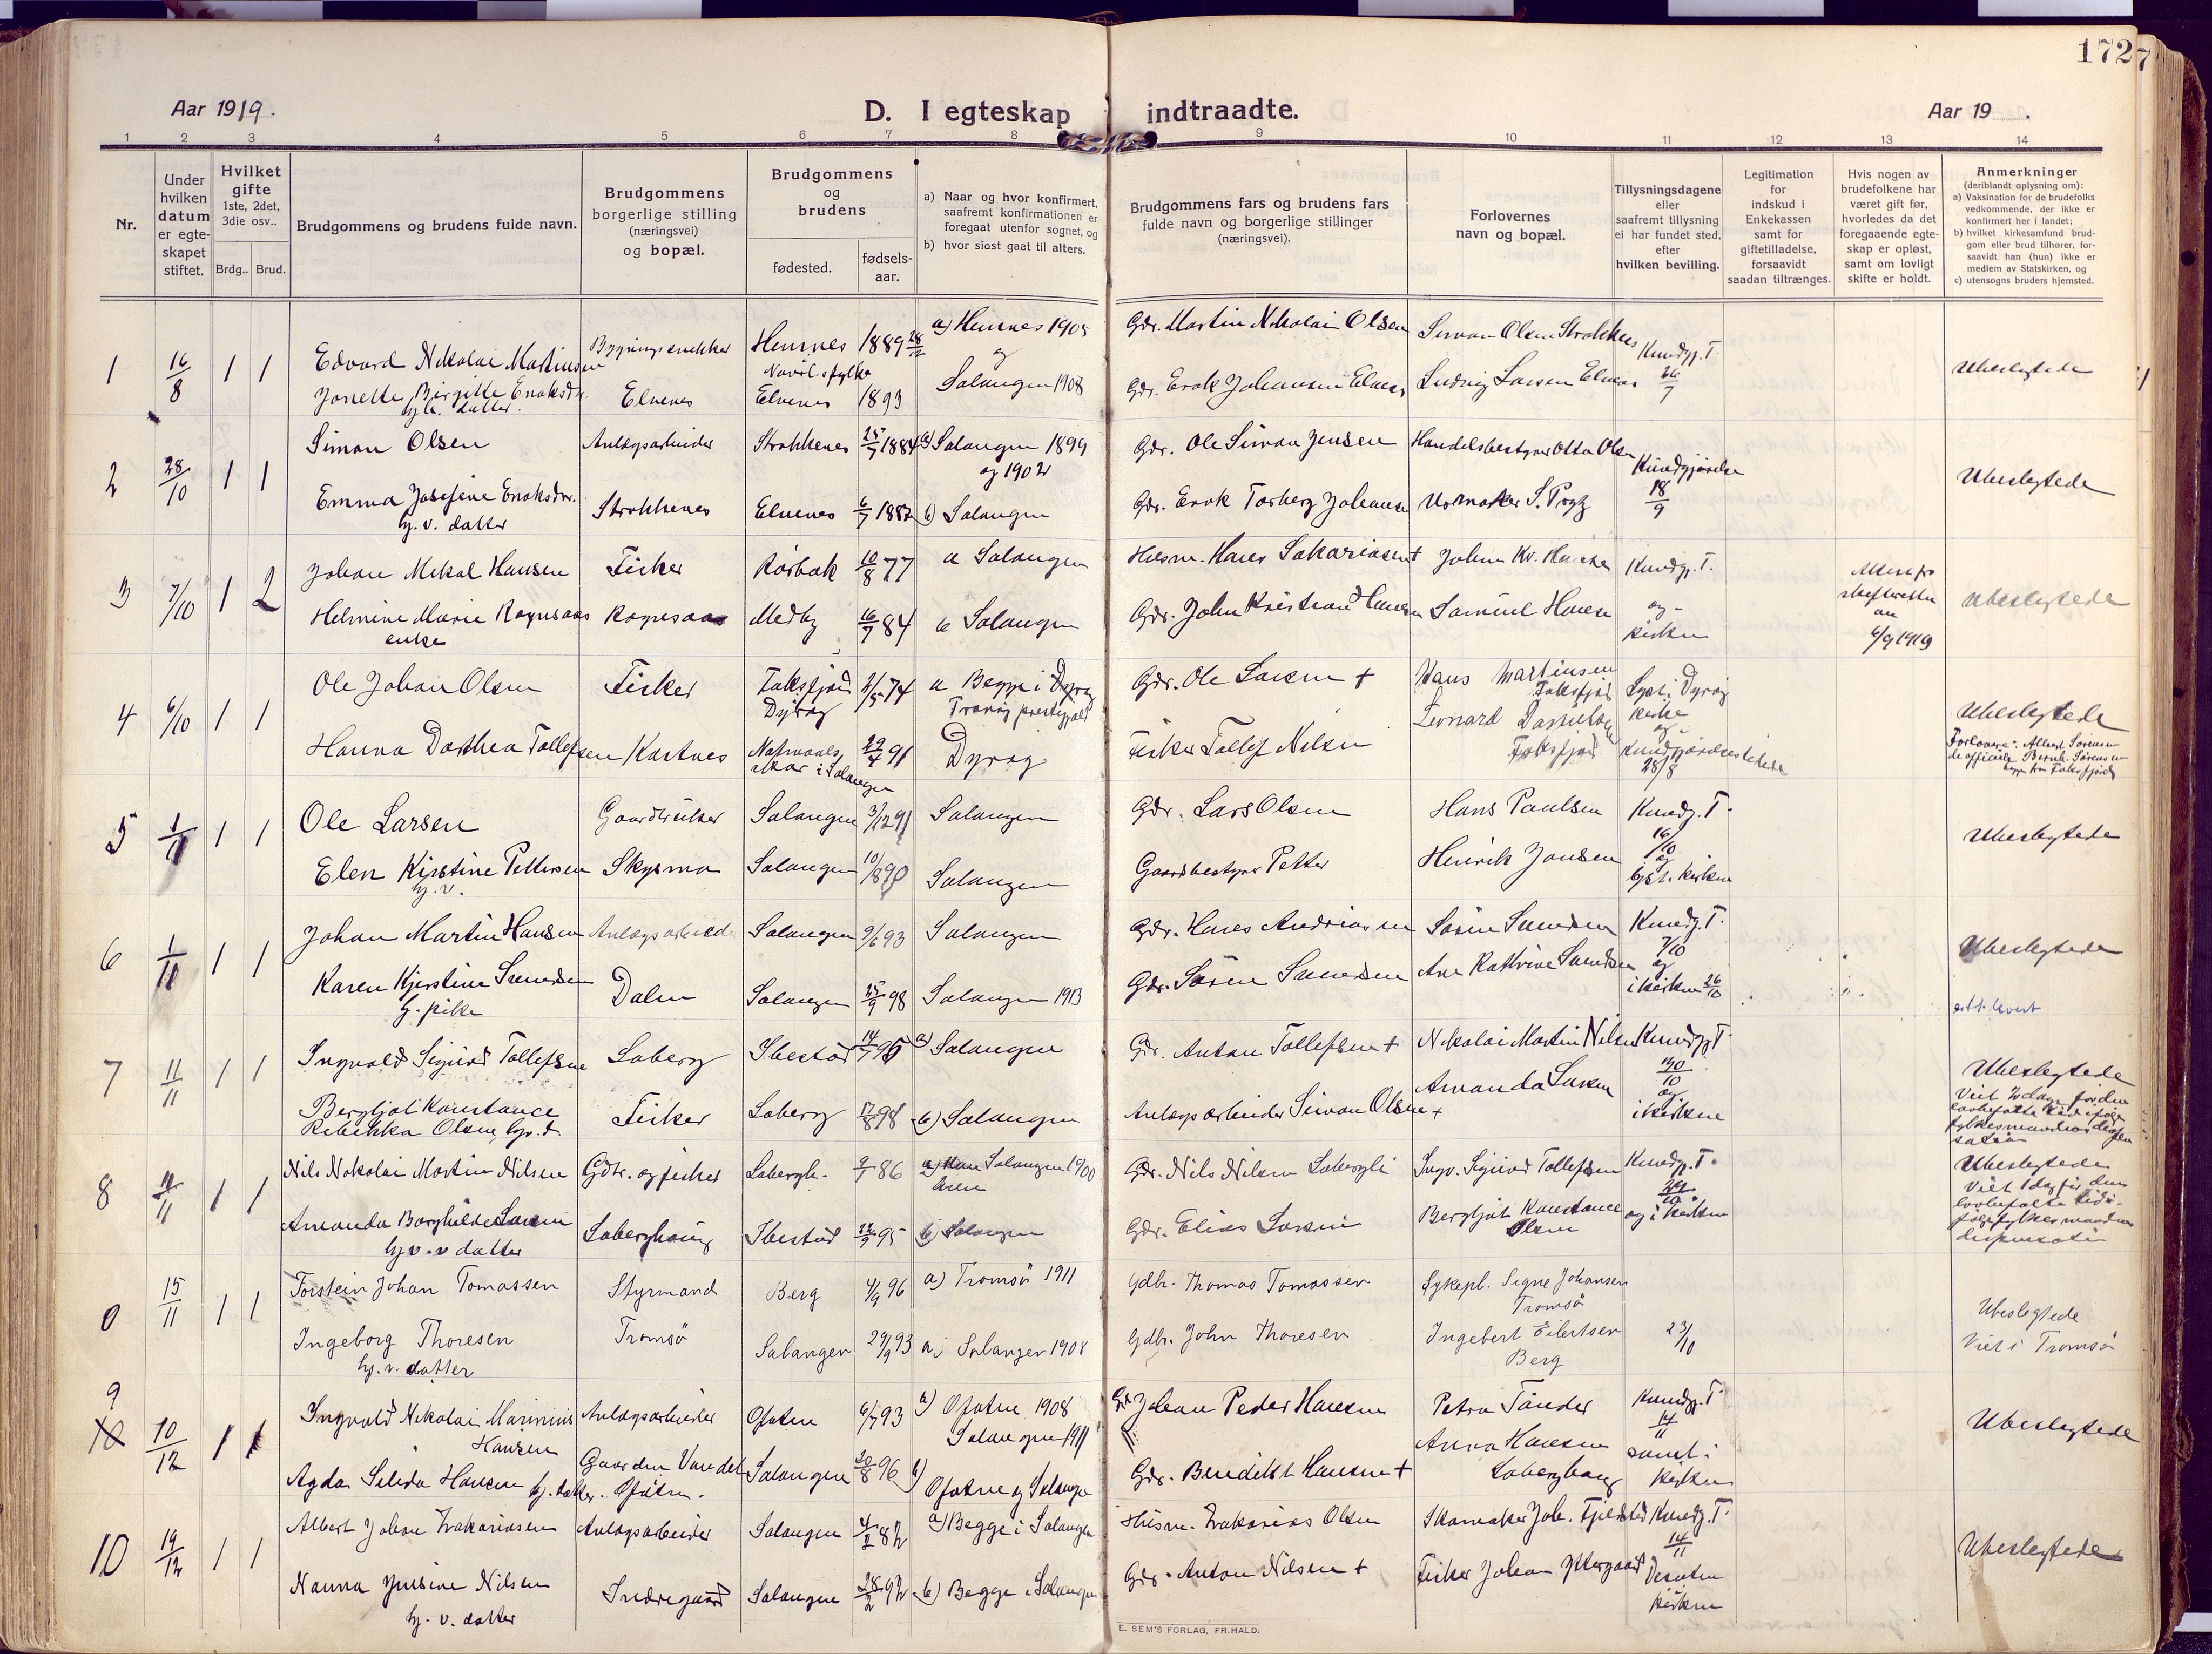 172
Aar 1919.
D. I egteskap indtraadte.
Aar 19
1 2 3 4 5 6 7 8 9 10 11 12 13 14
Nr.
Under hvilken datum er egteskapet stiftet.
Hvilket gifte 1ste, 2det, 3die osv..
Brdg.. Brud.
Brudgommens og brudens fulde navn.
Brudgommens borgerlige stilling (næringsvei) og bopæl.
Brudgommens og brudens
fødested.
fødsels-aar.
a) Naar og hvor konfirmert, saafremt konfirmationen er foregaat utenfor sognet, og
b) hvor sidst gaat til alters.
Brudgommens fars og brudens fars fulde navn og borgerlige stillinger (næringsvei).
Forlovernes navn og bopæl.
Tillysningsdagene eller saafremt tillysning ei har fundet sted, efter hvilken bevilling.
Legitimation for indskud i Enkekassen samt for giftetilladelse, forsaavidt saadan tiltrænges.
Hvis nogen av brudefolkene har været gift før, hvorledes da det foregaaende egteskap er opløst, samt om lovligt skifte er holdt.
Anmerkninger
(deriblandt oplysning om):
a) Vaksination for de brudefolks vedkommende, der ikke er konfirmert her i landet;
b) hvilket kirkesamfund brudgom eller brud tilhører, forsaavidt han (hun) ikke er medlem av Statskirken, og
c) utensogns bruders hjemsted.
1 16/8 1 1 Edvard Nikolai Martinsen Bygningssnekker Hemnes 1889 a) Hemnes 1905 Gdr. Martin Nikolai Olsen Simon Olsen Strokkenes Kundgj. T. Ubeslegtede
Elvenes Elvenes 1893 og Salangen 1908 Gdr. Enok Johansen Elvenes Ludvig Larsen Elvenes 26/7
2 28/10 1 1 Simon Olsen Anlægsarbeider Strokkenes 25/7 1884 a) Salangen 1899 og 1902 Gdr. Ole Simon Jensen Handelsbestyrer Otto Olsen Kundgjørelse 18/9 Ubeslegtede
Emma Josefine Enoksdtr. Strokkenes Elvenes 6/7 1882 b) Salangen Gdr. Enok Torberg Johansen Urmaker
3 7/10 1 2 Johan Mikal Hansen Fisker Rørbak 10/8 77 a Salangen Husm. Hans Sakariasen + Kundgj. T. Ubeslegtede
Helmine Marie Rognsaas Rognsaas Medby 16/7 84 b Salangen Gdr. John Kristian Hansen Samuel Hansen og kirken 6/9 1919
enke
4 6/10 1 1 Ole Johan Olsen Fisker Faksfjord Dyrøy 2/5 74 a Begge i Tranøy prestegjeld Gdr. Ole Larsen + Hans Martinsen Faksfjord Lyst i Dyrøy kirke Ubeslegtede
Hanna Dorthea Tollefsen Kastnes i Salangen 22/4 91 Dyrøy Fisker Tollef Nilsen Leonard Danielsen Faksfjord 28/8
5 1/11 1 1 Ole Larsen Gaardbruker Salangen 3/12 91 Salangen Gdr. Lars Olsen Hans Paulsen Kundgj. T. 16/10 og Ubeslegtede
Elen Kirstine Pettersen Skysmo Salangen 10/8 90 Salangen Gaardbestyrer Petter Henrik Jansen lyst i kirken
hj. v.
6 1/11 1 1 Johan Martin Hansen Anlægsarbeider Salangen 9/6 93 Salangen Gdr. Hans Andreassen Søren Svendsen Kundgj. T. 7/10 og Ubeslegtede
Karen Kjerstine Svendsen Dalen Salangen 25/9 98 Salangen 1913 Gdr. Søren Svendsen Ane Kathrine Svendsen i kirken 26/10
hj. pike
7 11/11 1 1 Ingvald Sigurd Tollefsen Løberg Ibestad 14/7 95 a) Salangen Gdr. Anton Tollefsen + Nikolai Martin Nilsen Kundgj. T. og Ubeslegtede
Bergljot Konstance Rebekka Olsen Fisker Løberg 17/8 98 b) Salangen Anlægsarbeider Simon Olsen + Amanda Larsen i kirken
8 11/11 1 1 Nils Nikolai Martin Nilsen Gdbr. og fisker 9/7 86 a) Salangen 1900 Gdr. Nils Nilsen Løbergli Ingv. Sigurd Tollefsen Kundgj. T. Ubeslegtede
Amanda Borghilde Larsen Løberghaug Ibestad 22/9 95 b) Salangen Gdr. Elias Larsen Bergljot Konstance Olsen og i kirken
hj. v. datter
0 15/11 1 1 Torstein Johan Tomassen Styrmand Berg 4/9 96 a) Tromsø 1911 Gdbr. Thomas Tomassen Sykepl. Signe Johansen Tromsø Ubeslegtede
Ingeborg Thoresen Tromsø Salangen 29/9 93 a) Salangen 1908 Gdbr. John Thoresen Ingebert Eilertsen Berg 23/10 Viet i Tromsø
hj. v. datter
9 10 10/12 1 1 Ingvald Nikolai Marinius Hansen Anlægsarbeider Ofoten 6/7 93 a) Ofoten 1908 Salangen 1911 Gdr. Johan Peder Hansen Petra Tønder Kundgj. T. 14/11 samt i kirken Ubeslegtede
Agda Hansen hj. datter Ofoten. Salangen 20/8 96 b) Ofoten og Salangen Gdr. Benedikt Hansen + Anna Hansen Løberghaug
10 19/12 1 1 Albert Johan Zakariasen Anlægsarbeider Salangen 4/2 82 a) Begge i Salangen Husm. Zakarias Olsen Skomaker Joh. Fjeldstad Kundgj. T. 14/11 Desuten kirken Ubeslegtede
Nanna Jensine Nilsen Indregaard Salangen 28/2 92 b) Begge i Salangen Gdr. Anton Nilsen + Fisker Johan Yttergaard
hj. v. datter
E. SEM'S FORLAG, FR.HALD.